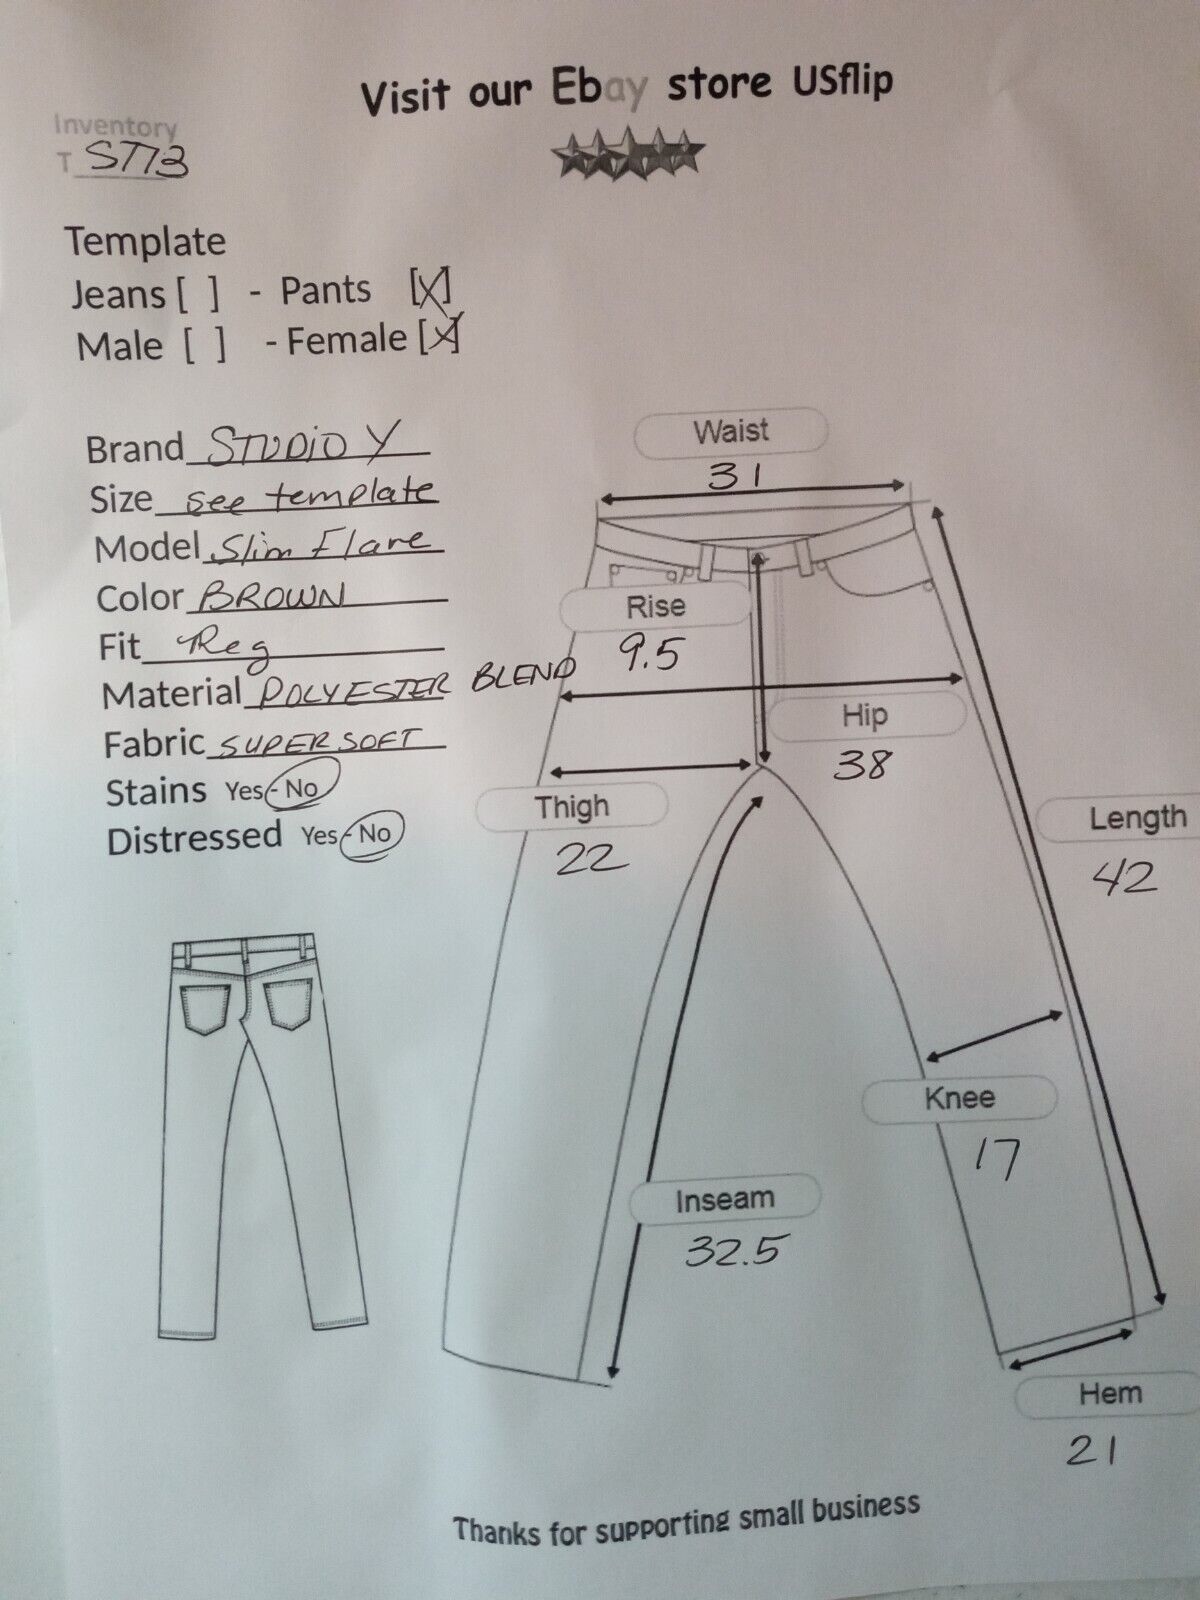 Visit our Ebay store USflip
Inventory
T ST13
Template
Jeans [ ] - Pants [X]
Male [ ] - Female [X]
Brand STUDIO Y
Size see template
Model Slim Flare
Color BROWN
Fit Reg
Material POLYESTER BLEND
Fabric SUPER SOFT
Stains Yes - No
Distressed Yes - No
Waist
31
Rise
9.5
Hip
38
Thigh
22
Length
42
Knee
17
Inseam
32.5
Hem
21
Thanks for supporting small business